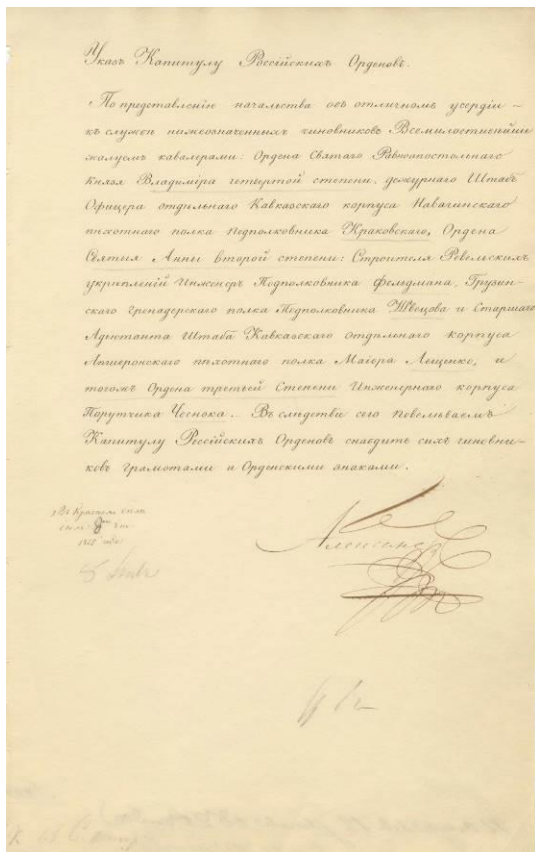 Указъ Капитулу Россійскихъ Орденовъ.
По представленію начальства объ отличномъ усердіи
къ службѣ нижеозначенныхъ чиновниковъ Всемилостивѣйше
жалуемъ кавалерами: Ордена Святаго Равноапостольнаго
Князя Владиміра четвертой степени, дежурнаго Штабъ
Офицера отдѣльнаго Кавказскаго корпуса Навагинскаго
пѣхотнаго полка Подполковника Краковскаго, Ордена
Святыя Анны второй степени: Строителя Ревельскихъ
укрѣпленій Инженеръ Подполковника Фельдмана, Грузин-
скаго гренадерскаго полка Подполковника Швецова и Старшаго
Адъютанта Штаба Кавказскаго отдѣльнаго корпуса
Апшеронскаго пѣхотнаго полка Маіора Лещенко, и
тогожъ Ордена третьей Степени Инженернаго корпуса
Порутчика Чеснока. Въ слѣдствіи сего Повелѣваемъ
Капитулу Россійскихъ Орденовъ снабдить сихъ чиновни-
ковъ грамотами и Орденскими знаками.
Въ Красномъ селѣ
года
Александръ